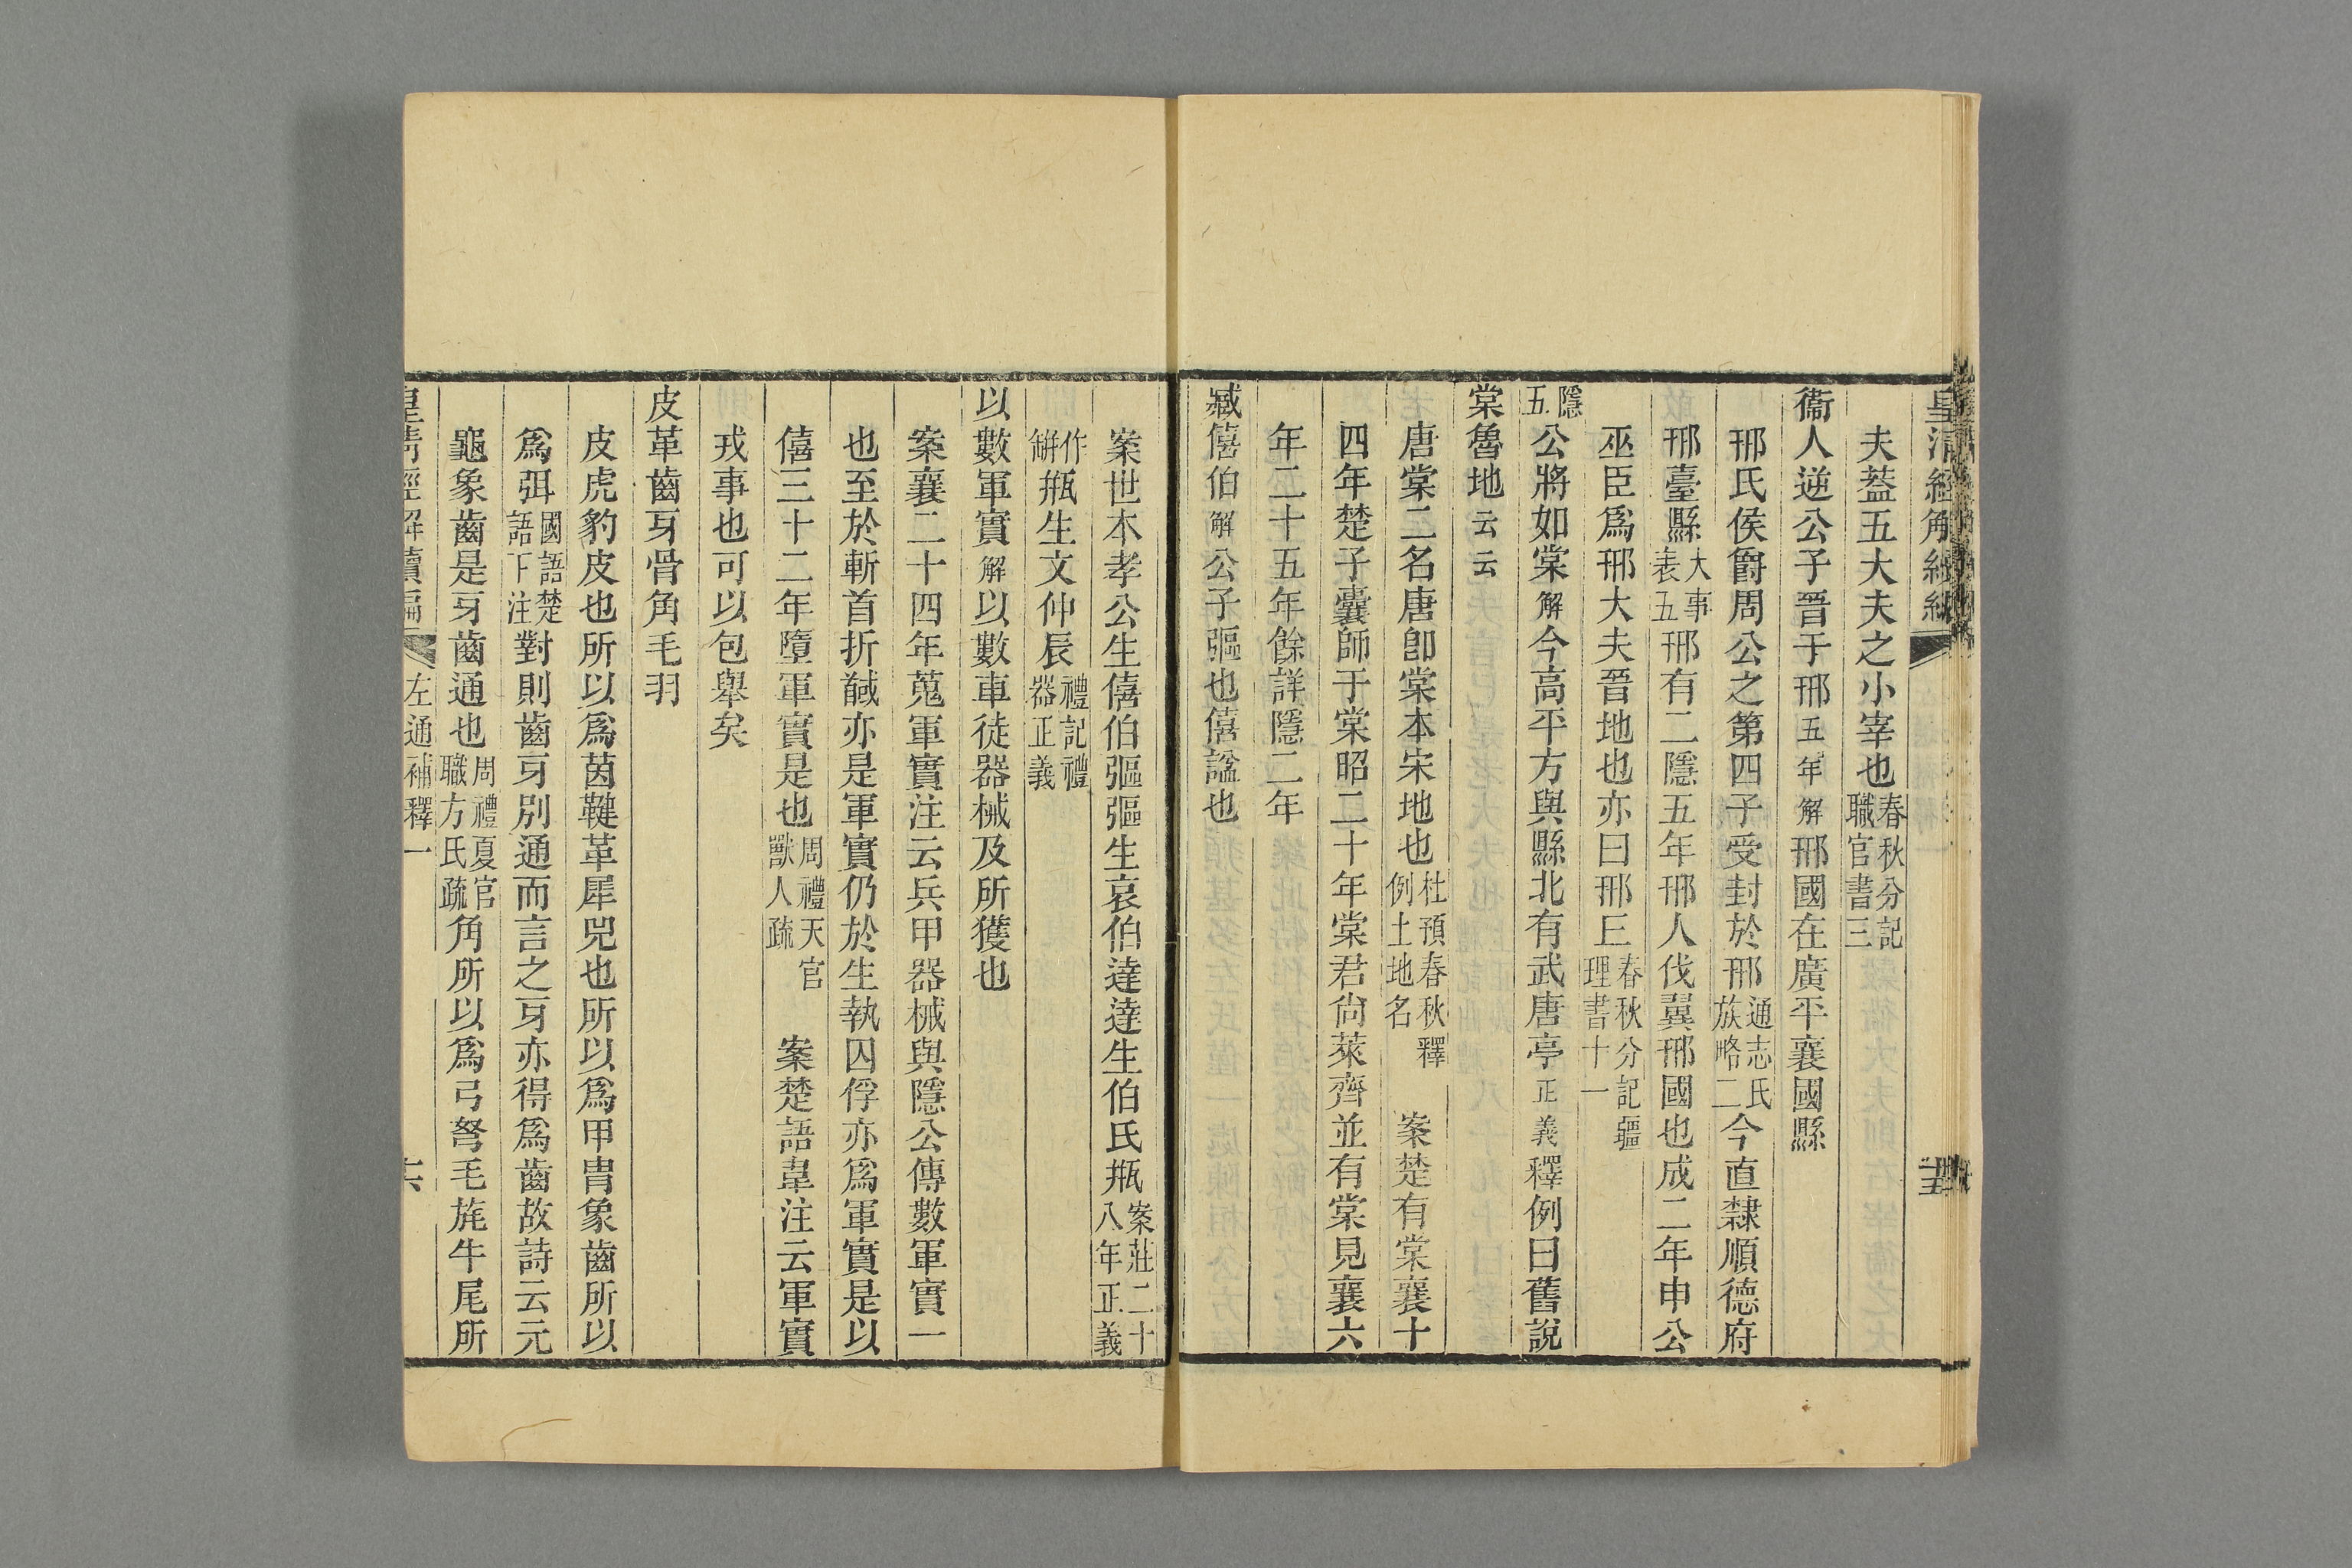 夫葢五大夫之小宰也春秋分記職官書三
衞人逆公子晉于邢五年解邢國在廣平襄國縣
邢氏侯爵周公之第四子受封於邢通志氏族略二今直隸順德府
邢臺縣大事表五邢有二隱五年邢人伐翼邢國也成二年申公
巫臣爲邢大夫晉地也亦曰邢丘春秋分記疆理書十一
隱五公將如棠解今高平方與縣北有武唐亭正義釋例曰舊說
棠魯地云云
唐棠二名唐卽棠本宋地也杜預春秋釋例土地名案楚有棠襄十
四年楚子囊師于棠昭二十年棠君尙萊齊並有棠見襄六
年二十五年餘詳隱二年
臧僖伯解公子彄也僖諡也
案世本孝公生僖伯彄彄生哀伯達達生伯氏甁案莊二十八年正義
作缾甁生文仲辰禮記禮器正義
以數軍實解以數車徒器械及所獲也
案襄二十四年蒐軍實注云兵甲器械與隱公傳數軍實一
也至於斬首折馘亦是軍實仍於生執囚俘亦爲軍實是以
僖三十二年墮軍實是也周禮天官獸人疏案楚語韋注云軍實
戎事也可以包舉矣
皮革齒牙骨角毛羽
皮虎豹皮也所以爲茵鞬革犀兕也所以爲甲冑象齒所以
爲弭國語楚語下注對則齒牙別通而言之牙亦得爲齒故詩云元
龜象齒是牙齒通也周禮夏官職方氏疏角所以爲弓弩毛旄牛尾所
皇淸經解續編 左通補釋一 六